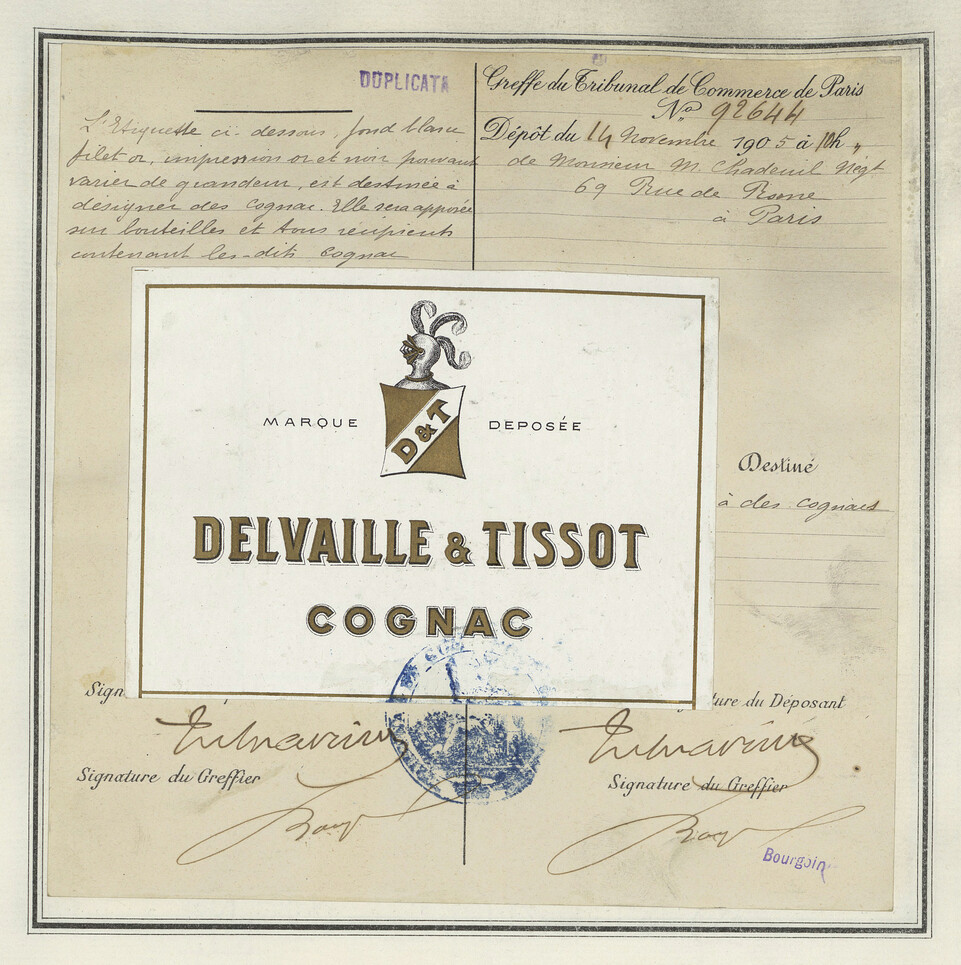 DUPLICATA
L'Etiquette ci-dessous, fond blanc
filet or, impression or et noir pouvant
varier de grandeur, est destinée à
désigner des Cognac. Elle sera apposée
sur bouteilles et tous récipients
contenant les-dits Cognac
Greffe du Tribunal de Commerce de Paris
No 92644
Dépôt du 14 Novembre 1905 à 10h "
de Monsieur M. Chadeuil Négt
69 Rue de Rome
à Paris
MARQUE DEPOSÉE
D&T
DELVAILLE & TISSOT
COGNAC
Destiné
à des cognacs
Sign
ture du Déposant
Signature du Greffier
Signature du Greffier
Bourgoin